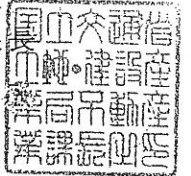 国土交通省
土地・建設産
業局不動産
業課長之印
長